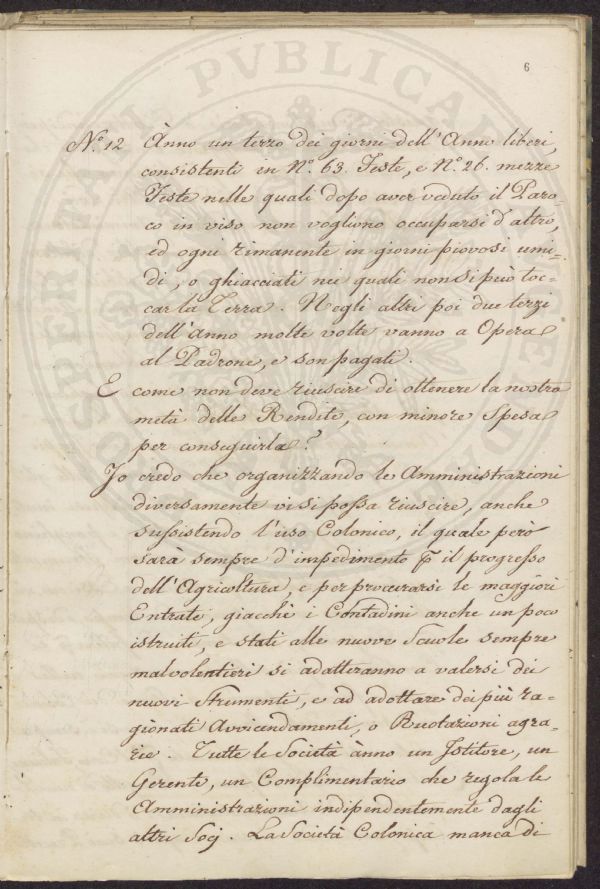 6
N.º 12 Ànno un terzo dei giorni dell'Anno liberi,
consistenti in N.º 63. Feste, e N.º 26. mezze
Feste nelle quali dopo aver veduto il Paro=
co in viso non vogliono occuparsi d'altro,
ed ogni rimanente in giorni piovosi umi=
di, o ghiacciati nei quali non si può toc=
car la Terra. Negli altri poi due terzi
dell'Anno molte volte vanno a Opera
al Padrone, e son pagati.
E come non deve riuscire di ottenere la nostra
metà delle Rendite, con minore Spesa
per conseguirla?
Io credo che organizzando le Amministrazioni
diversamente vi si possa riuscire, anche
sussistendo l'uso Colonico, il quale però
sarà sempre d'impedimento p il progresso
dell'Agricoltura, e per procurarsi le maggiori
Entrate, giacchè i Contadini anche un poco
istruiti, e stati alle nuove Scuole sempre
malvolentieri si adatteranno a valersi dei
nuovi Strumenti, e ad adottare dei più ra=
gionati Avvicendamenti, o Ruotazioni agra=
rie. Tutte le Società ànno un Istitore, un
Gerente, un Complimentario che regola le
Amministrazioni indipendentemente dagli
altri Socj. La Società Colonica manca di